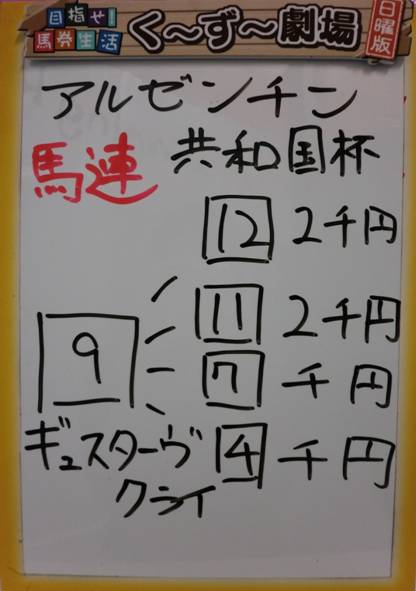 目指せ!
馬券生活
く〜ず〜劇場
日曜版
アルゼンチン
馬連 共和国杯
12 2千円
11 2千円
9
7 千円
ギュスターヴ 4 千円
クライ